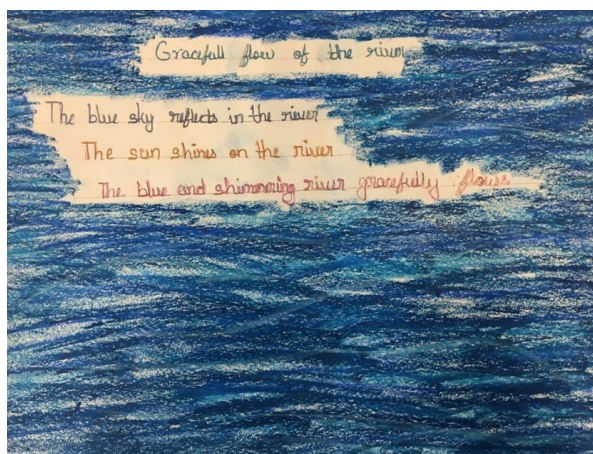 Gracefull flow of the river
The blue sky reflects in the river
The sun shines on the river
The blue and shimmering river gracefully flows